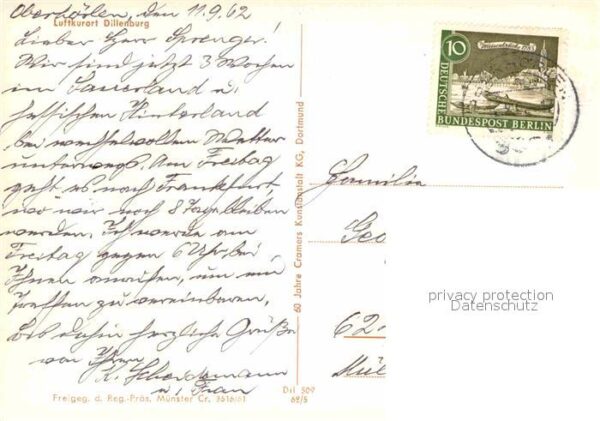 Oberhörlen, den 11.9.62
Luftkurort Dillenburg
Lieber Herr Sprenger!
Wir sind jetzt 3 Wochen
im Sauerland u.
hessischen Hinterland
bei wechselvollem Wetter
unterwegs. Am Freitag
geht es nach Frankfurt,
wo wir noch 8 Tage bleiben
werden. Ich werde am
Freitag gegen 6 Uhr bei
Ihnen anrufen, um ein
Treffen zu vereinbaren,
Bis dahin herzliche Grüße
von Ihrem
K.
u. Frau
Freigeg. d. Reg.-Präs. Münster Cr. 3616/61
Dil 509
62/5
60 Jahre Cramers Kunstanstalt KG, Dortmund
10
DEUTSCHE
BUNDESPOST BERLIN
Familie
Geo
privacy protection
Datenschutz
62-
Mül